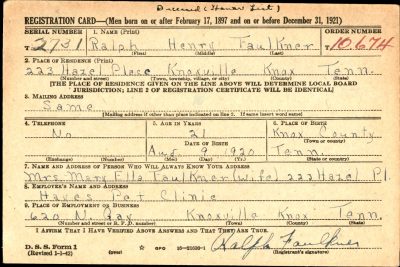 Deceased (Honor List)
REGISTRATION CARD—(Men born on or after February 17, 1897 and on or before December 31, 1921)
SERIAL NUMBER 1. NAME (Print) ORDER NUMBER
T 2731 Ralph Henry Faulkner T10,674
(First) (Middle) (Last)
2. PLACE OF RESIDENCE (Print)
223 Hazel Place Knoxville Knox Tenn.
(Number and street) (Town, township, village, or city) (County) (State)
[THE PLACE OF RESIDENCE GIVEN ON THE LINE ABOVE WILL DETERMINE LOCAL BOARD
JURISDICTION; LINE 2 OF REGISTRATION CERTIFICATE WILL BE IDENTICAL]
3. MAILING ADDRESS
Same
[Mailing address if other than place indicated on line 2. If same insert word same]
4. TELEPHONE 5. AGE IN YEARS 6. PLACE OF BIRTH
No 21 Knox County
DATE OF BIRTH (Town or county)
Aug 9 1920 Tenn.
(Exchange) (Number) (Mo.) (Day) (Yr.) (State or country)
7. NAME AND ADDRESS OF PERSON WHO WILL ALWAYS KNOW YOUR ADDRESS
Mrs. Mary Ella Faulkner (wife) 223 Hazel Pl.
8. EMPLOYER'S NAME AND ADDRESS
Hayes Pet Clinic
9. PLACE OF EMPLOYMENT OR BUSINESS
620 N. Gay Knoxville Knox Tenn.
(Number and street or R. F. D. number) (Town) (County) (State)
I AFFIRM THAT I HAVE VERIFIED ABOVE ANSWERS AND THAT THEY ARE TRUE.
D. S. S. Form 1 GPO 16-21630-1 Ralph Faulkner
(Revised 1-1-42) (over) (Registrant's signature)